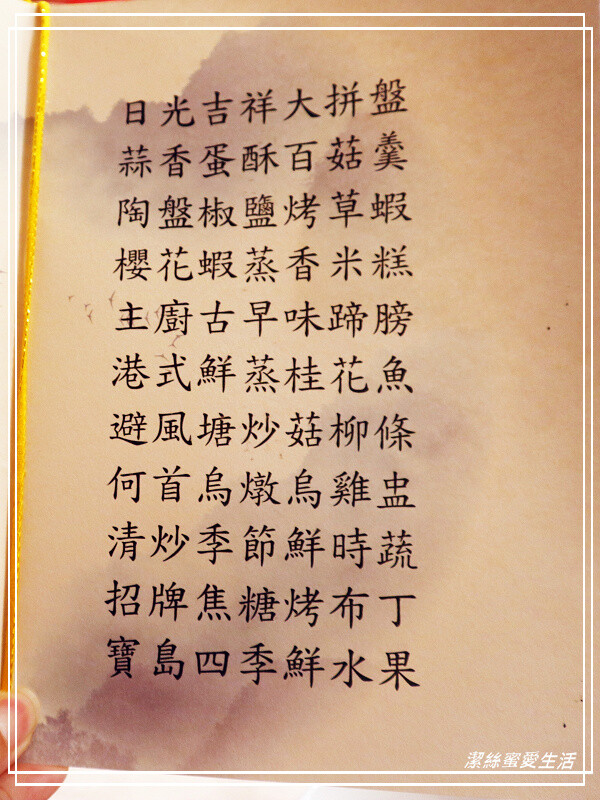 日光吉祥大拼盤
蒜香蛋酥百菇羹
陶盤椒鹽烤草蝦
櫻花蝦蒸香米糕
主廚古早味蹄膀
港式鮮蒸桂花魚
避風塘炒菇柳條
何首烏燉烏雞盅
清炒季節鮮時蔬
招牌焦糖烤布丁
寶島四季鮮水果
潔絲蜜愛生活